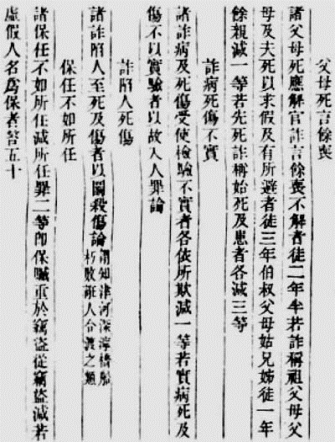 父母死言餘喪
諸父母死應解官詐言餘喪不解者徒二年半若詐稱祖父母父
母及夫死以求假及有所避者徒三年伯叔父母姑兄姊徒一年
餘親減一等若先死詐稱始死及患者各減三等
詐病死傷不實
諸詐病及死傷受使檢驗不實者各依所欺減一等若實病死及
傷不以實驗者以故入人罪論
詐陷人死傷
諸詐陷人至死及傷者以鬬殺傷論謂知津河深濘橋船
朽敗誑人令渡之類
保任不如所任
諸保任不如所任減所任罪二等卽保贓重於竊盜從竊盜減若
虛假人名爲保者笞五十